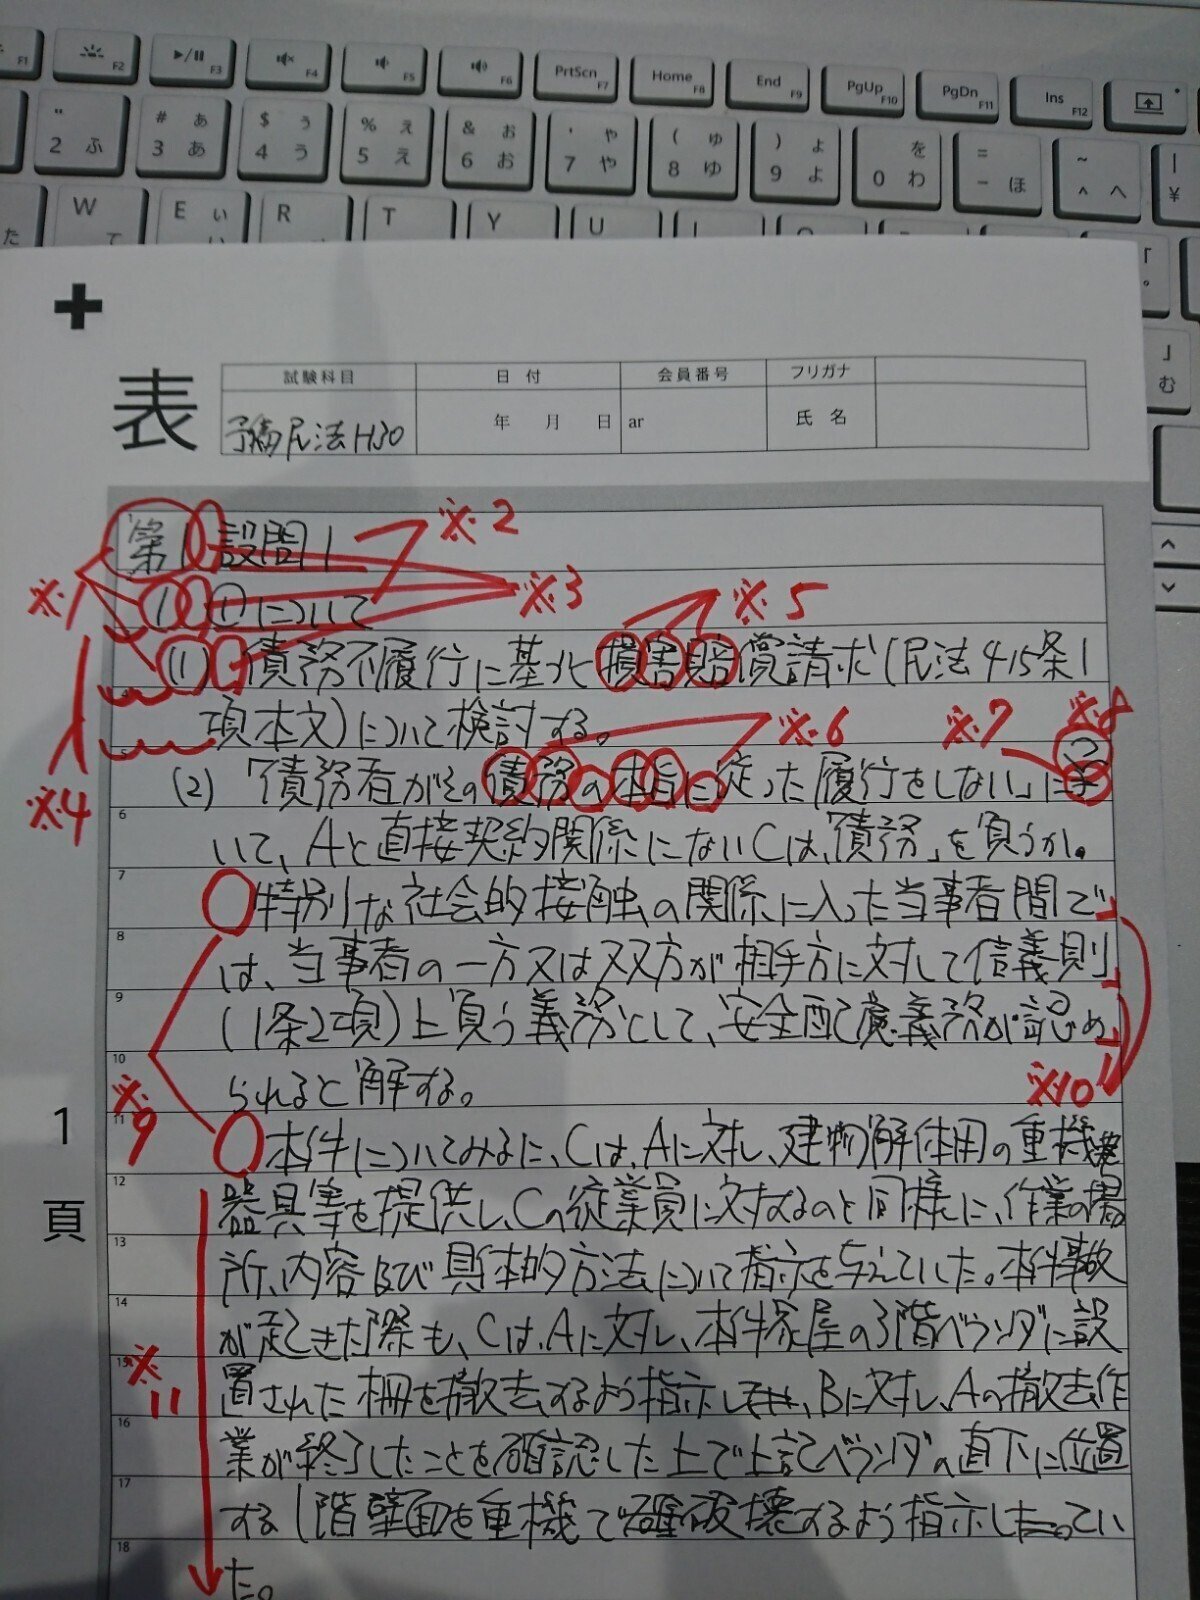 F1 F2 F3 F4 F5 F6 PrtScn F7 Home F8 End F9 PgUp F10 PgDn F11 Ins F12
" 2 ふ # ぁ 3 あ $ ぅ 4 う % ぇ 5 え & ぉ 6 お ' ゃ 7 や ( ゅ 8 ゆ ) ょ 9 よ を 0 わ = - ほ ~ ^ へ | ¥
た W て E ぃ い R T Y U 「
」 む
表
試験科目 日付 会員番号 フリガナ
予備民法H30 年 月 日 ar 氏名
第1 設問1 ※2
※1 1 ①について ※3
(1) 債務不履行に基づく損害賠償請求(民法415条1 ※5
項本文)について検討する。 ※6 ※7 ※8
※4 (2) 「債務者がその債務の本旨に従った履行をしない」に つ
6 いて、Aと直接契約関係にないCは、「債務」を負うか。
7 特別な社会的接触の関係に入った当事者間で
8 は、当事者の一方又は双方が相手方に対して信義則
9 (1条2項)上負う義務として、安全配慮義務が認め
10 られると解する。 ※10
※9 11 本件についてみるに、Cは、Aに対し、建物解体用の重機、
12 器具等を提供し、Cの従業員に対するのと同様に、作業の場
13 所、内容及び具体的方法について指示を与えていた。本件事故
14 が起きた際も、Cは、Aに対し、本件家屋の3階ベランダに設
15 置された柵を撤去するよう指示し、Bに対し、Aの撤去作
※11
16 業が終了したことを確認した上で上記ベランダの直下に位置
17 する1階壁面を重機で破壊するよう指示してい
18 た。
1
頁